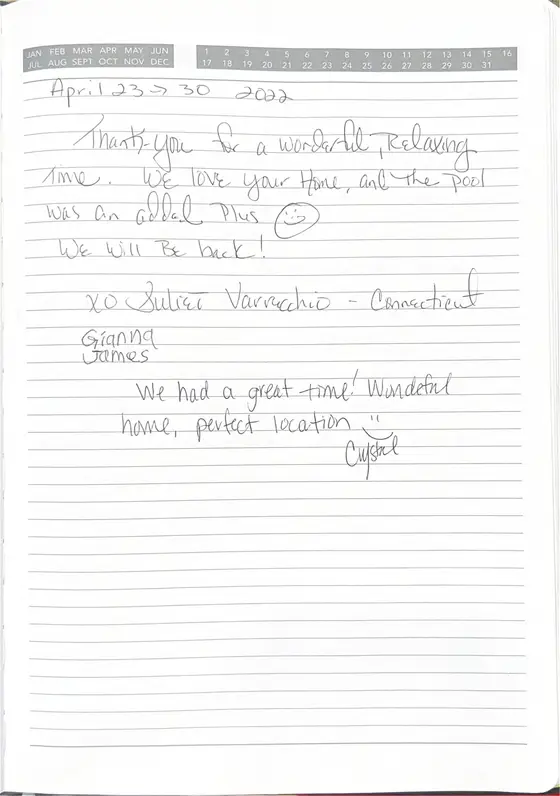 JAN FEB MAR APR MAY JUN
JUL AUG SEPT OCT NOV DEC
1 2 3 4 5 6 7 8 9 10 11 12 13 14 15 16
17 18 19 20 21 22 23 24 25 26 27 28 29 30 31
April 23 → 30 2022
Thank-you for a wonderful, Relaxing
Time. We love your Home, and the pool
was an added Plus ☺
We will Be back!
XO Juliet Varrecchio - Connecticut
Gianna
James
We had a great time! Wondeful
home, perfect location
Crystal